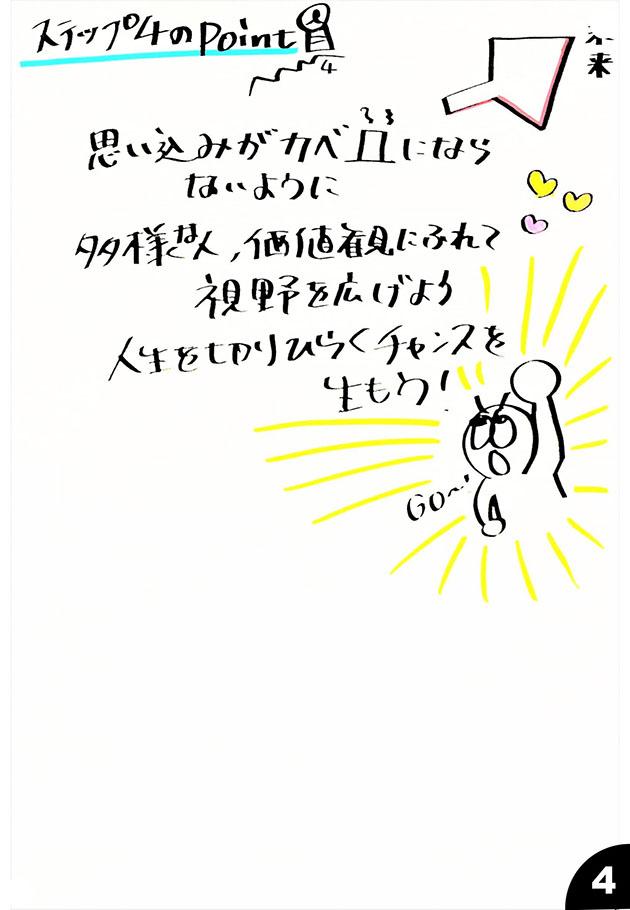 ステップ4のPoint
4
未来
思い込みがカベにならないように
多様な人,価値観にふれて
視野を広げよう
人生を切りひらくチャンスを
生もう!
GO〜!
4